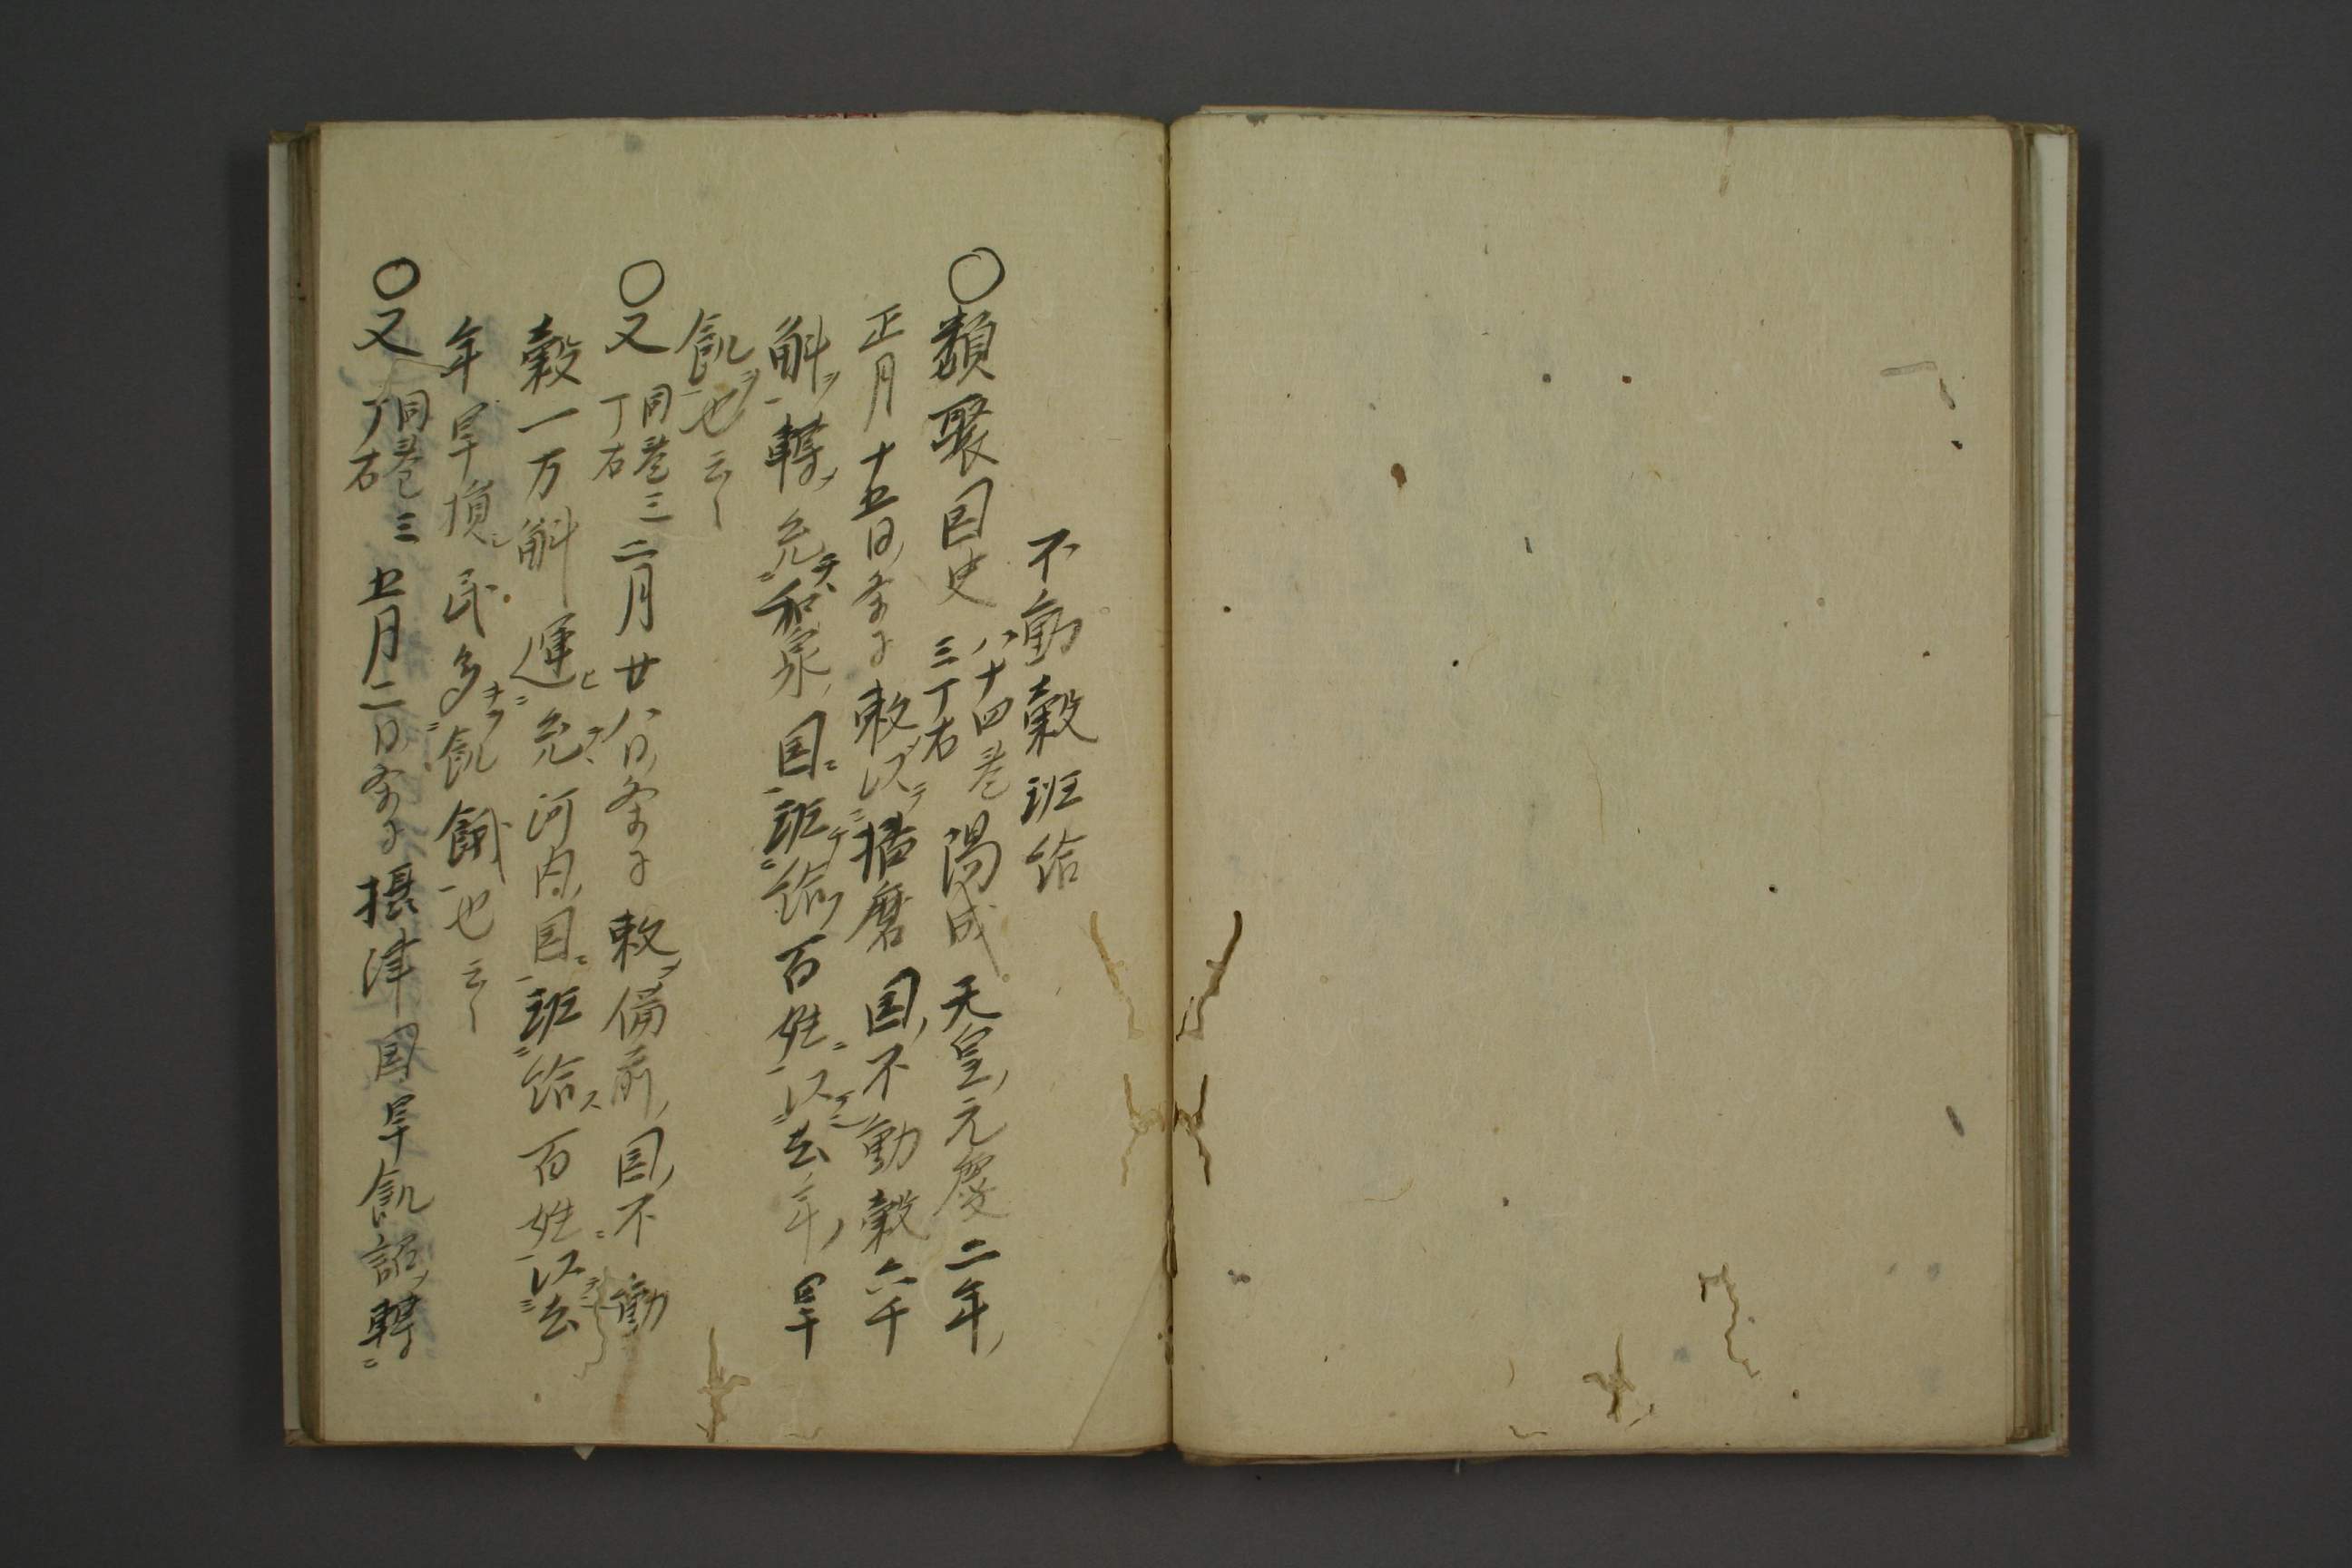 不動穀班給
〇類聚国史八十四巻三丁右陽成天皇元慶二年
正月十五日条ニ勅以播磨国不動穀六千
斛ヲ轉充和泉国班給百姓以去年旱
飢也云〻
〇又同巻三丁右二月廿八日条ニ勅備前国不動
穀一万斛運充河内国班給百姓以去
年旱損民多飢餓也云〻
〇又同巻三丁右五月二日条ニ摂津国旱飢詔轉